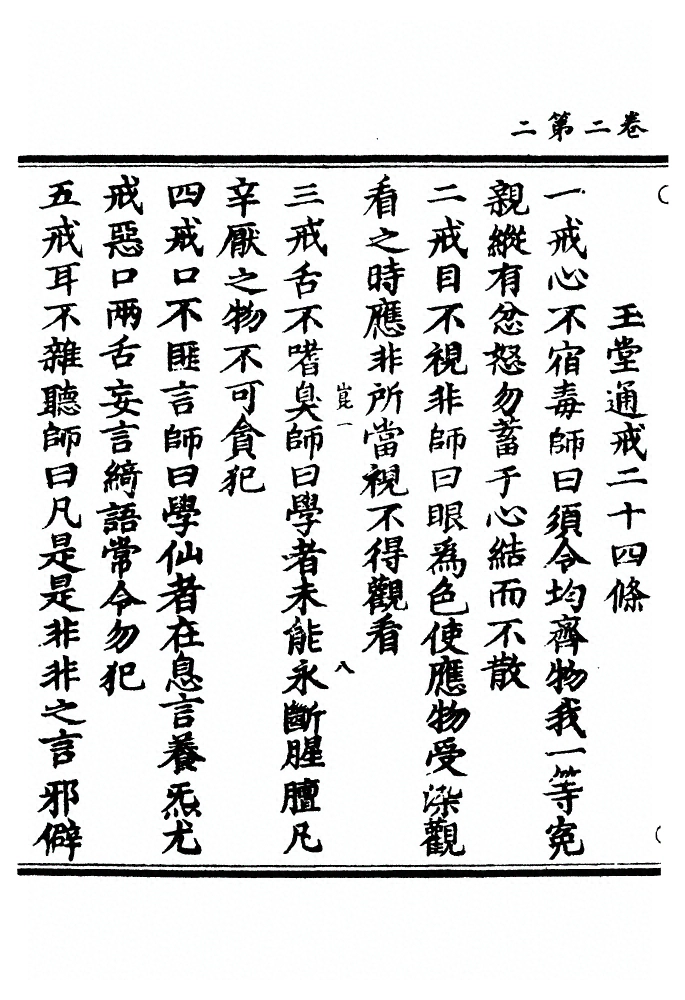 卷二第二
玉堂通戒二十四條
一戒心不宿毒師曰須令均齊物我一等寃
親縱有忿怒勿蓄于心結而不散
二戒目不視非師曰眼爲色使應物受染觀
看之時應非所當視不得觀看
崑一 八
三戒舌不嗜臭師曰學者未能永斷腥膻凡
辛厭之物不可貪犯
四戒口不匪言師曰學仙者在息言養炁尤
戒惡口兩舌妄言綺語常令勿犯
五戒耳不雜聽師曰凡是是非非之言邪僻